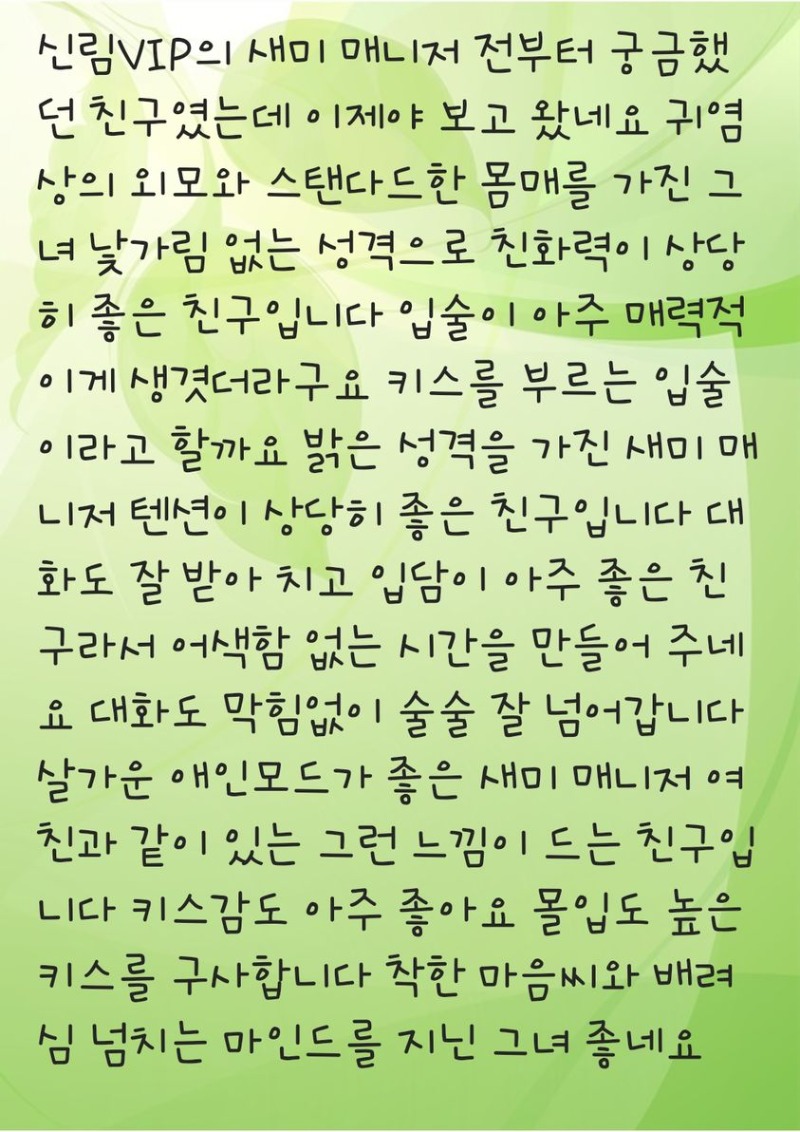 신림VIP의 새미 매니저 전부터 궁금했
던 친구였는데 이제야 보고 왔네요 귀염
상의 외모와 스탠다드한 몸매를 가진 그
녀 낯가림 없는 성격으로 친화력이 상당
히 좋은 친구입니다 입술이 아주 매력적
이게 생겼더라구요 키스를 부르는 입술
이라고 할까요 밝은 성격을 가진 새미 매
니저 텐션이 상당히 좋은 친구입니다 대
화도 잘 받아 치고 입담이 아주 좋은 친
구라서 어색함 없는 시간을 만들어 주네
요 대화도 막힘없이 술술 잘 넘어갑니다
살가운 애인모드가 좋은 새미 매니저 여
친과 같이 있는 그런 느낌이 드는 친구입
니다 키스감도 아주 좋아요 몰입도 높은
키스를 구사합니다 착한 마음씨와 배려
심 넘치는 마인드를 지닌 그녀 좋네요